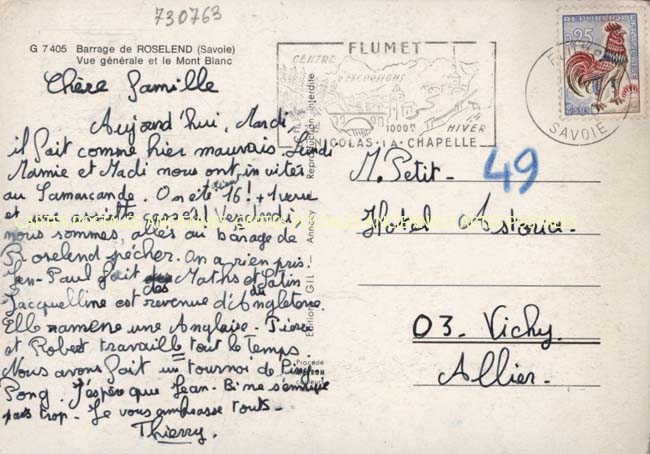 730763
G 7405 Barrage de ROSELEND (Savoie)
Vue générale et le Mont Blanc
Chère famille
Aujourd'hui, Mardi,
il fait comme hier mauvais. Lundi
Mamie et Madi nous ont invités
au Samarcande. On était 16! + 1 verre
et une assiette Vendredi
nous sommes allés au barage de
Roselend pécher. On a rien pris.
Jean-Paul fait des Maths et du Latin
Jacquelline est revenue d'Angleterre.
Elle ramène une Anglaise - Pierre
et Robert travaille tout le temps
Nous avons fait un tournoi de Ping
Pong. J'éspère que Jean-Bi ne s'ennuie
pas trop - Je vous ambrasse touts -
Thierry.
Edition GIL - Annecy - Reproduction interdite
Procédé
FLUMET
CENTRE
D'EXCURSIONS
1000m
HIVER
NICOLAS-LA-CHAPELLE
0,25
REPUBLIQUE
FLUMET
SAVOIE
49
M. Petit -
Hotel Astoria -
03 - Vichy
Allier -